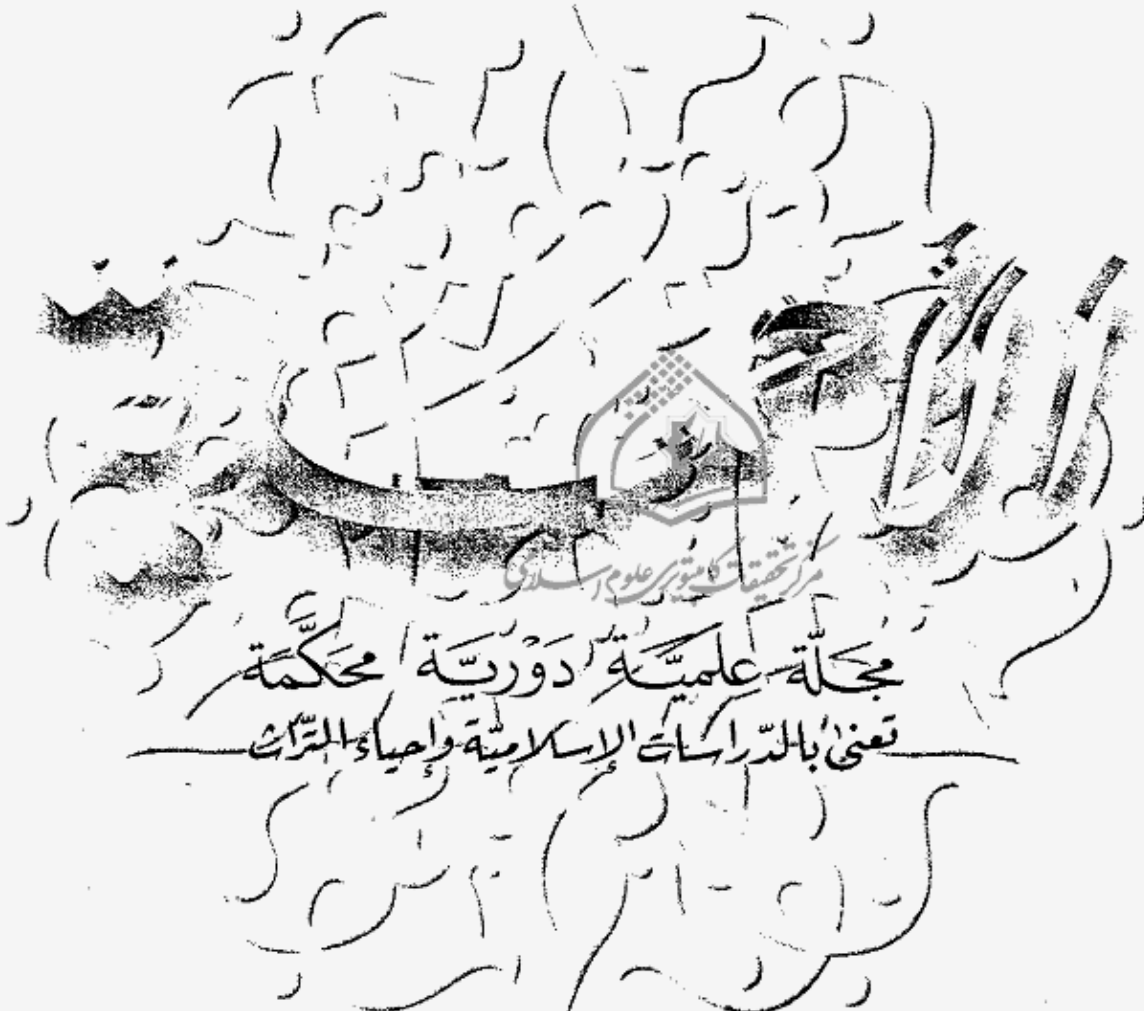 الأحمدية
مركز تحقيقات كامپيوترى علوم اسلامى
مَجَلَّة عِلميَّة دَوْريَّة محَكَّمَة
تعنىٰ بالدّراسات الإسلاميّة وإحياء التّراث